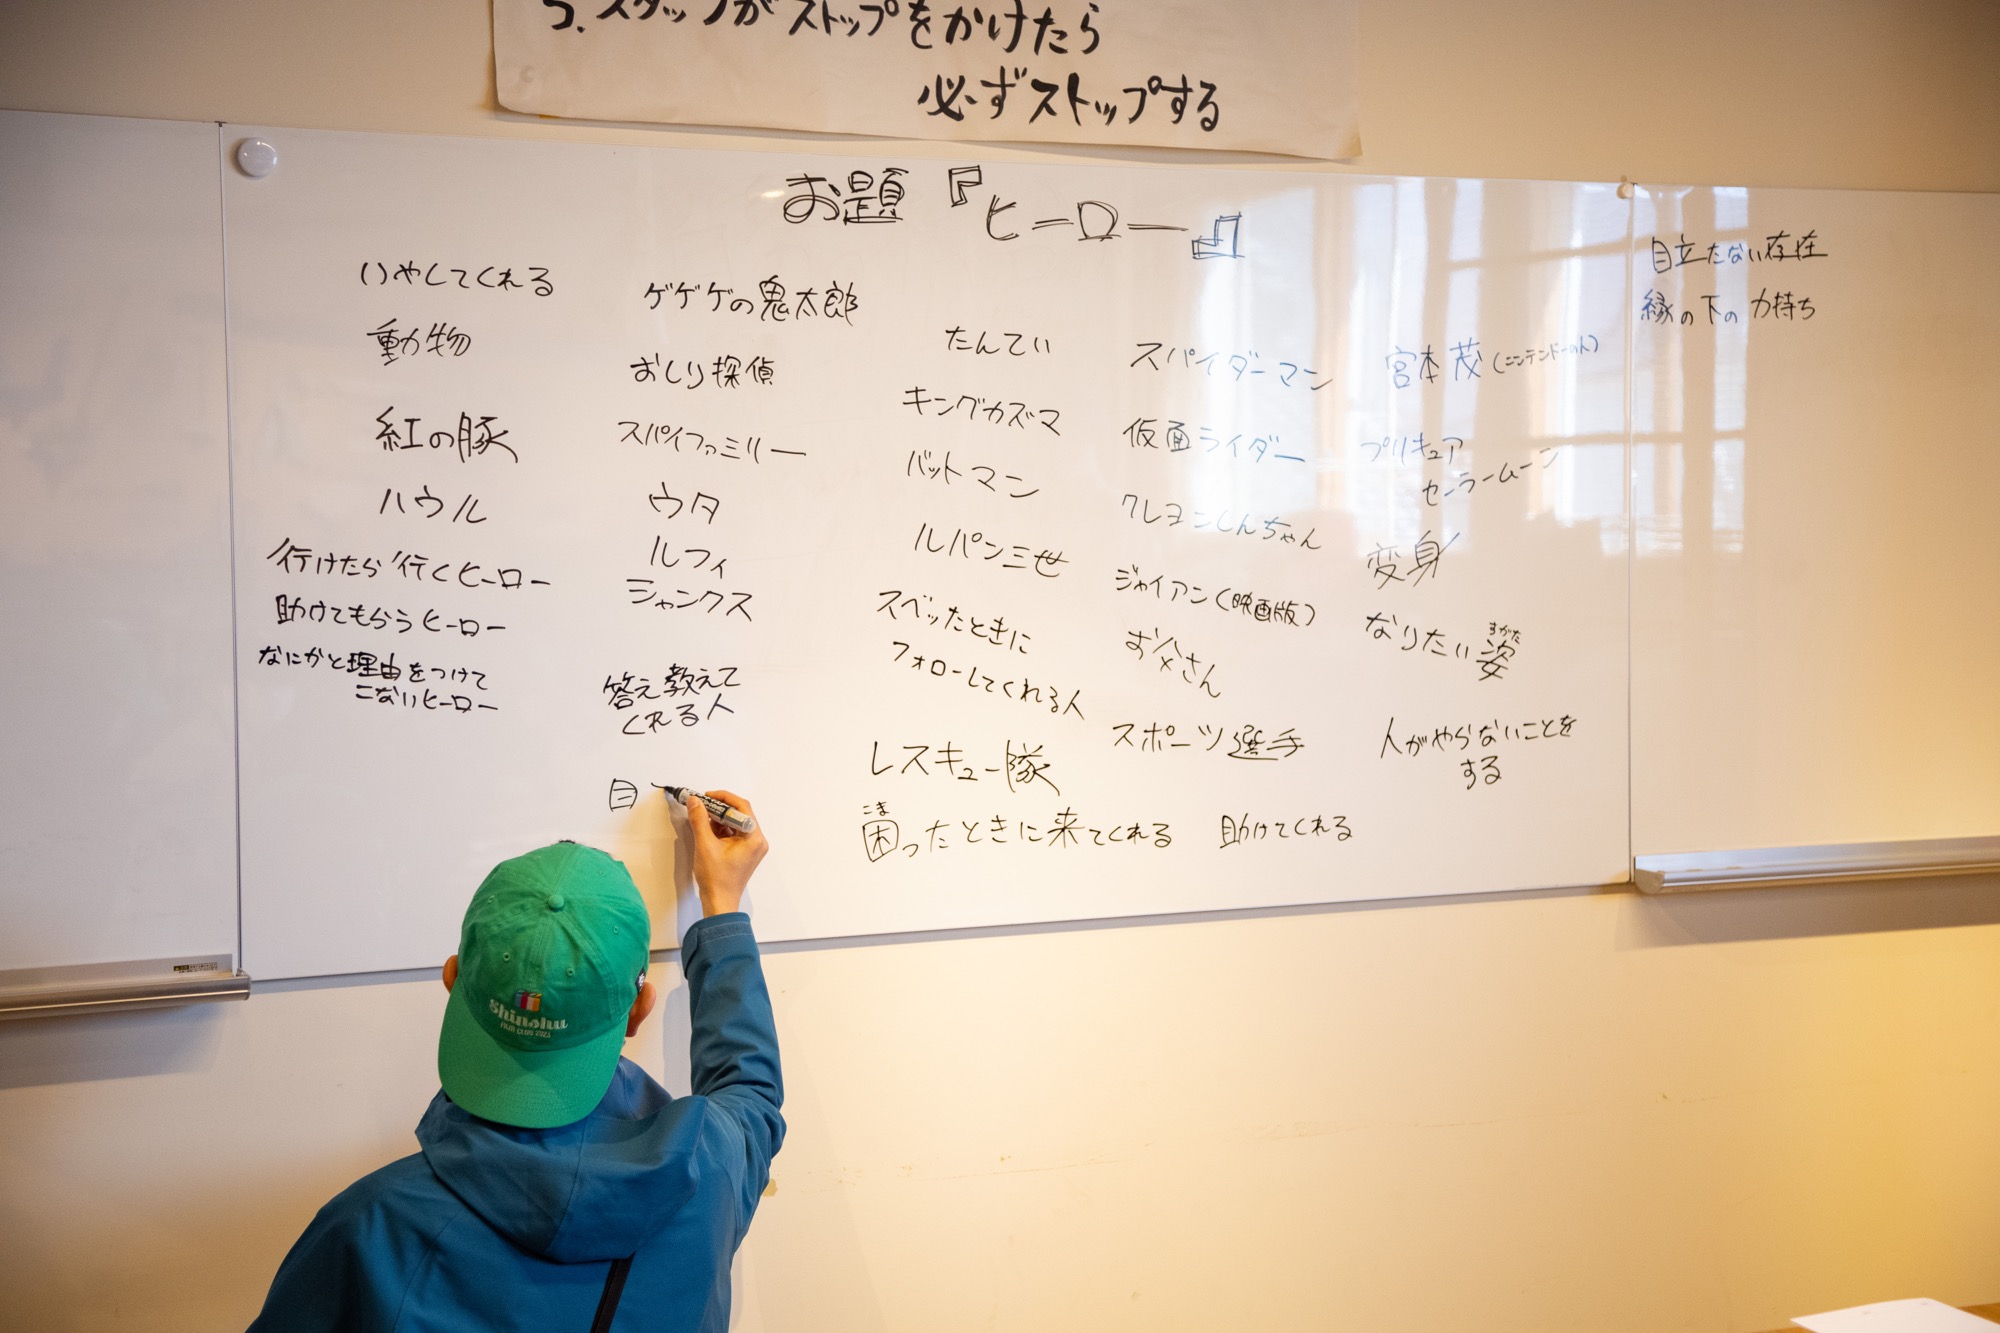 5. スタッフがストップをかけたら
必ずストップする
お題『ヒーロー』
いやしてくれる
動物
紅の豚
ハウル
行けたら行くヒーロー
助けてもらうヒーロー
なにかと理由をつけて
こないヒーロー
ゲゲゲの鬼太郎
おしり探偵
スパイファミリー
ウタ
ルフィ
シャンクス
答え教えて
くれる人
目
たんてい
キングカズマ
バットマン
ルパン三世
スベッたときに
フォローしてくれる人
レスキュー隊
こま
困ったときに来てくれる 助けてくれる
スパイダーマン
仮面ライダー
クレヨンしんちゃん
ジャイアン(映画版)
お父さん
スポーツ選手
宮本茂(ニンテンドーの人)
プリキュア
セーラームーン
変身
すがた
なりたい姿
人がやらないことを
する
目立たない存在
縁の下の力持ち
Shinshu
FILM CLUB 2023